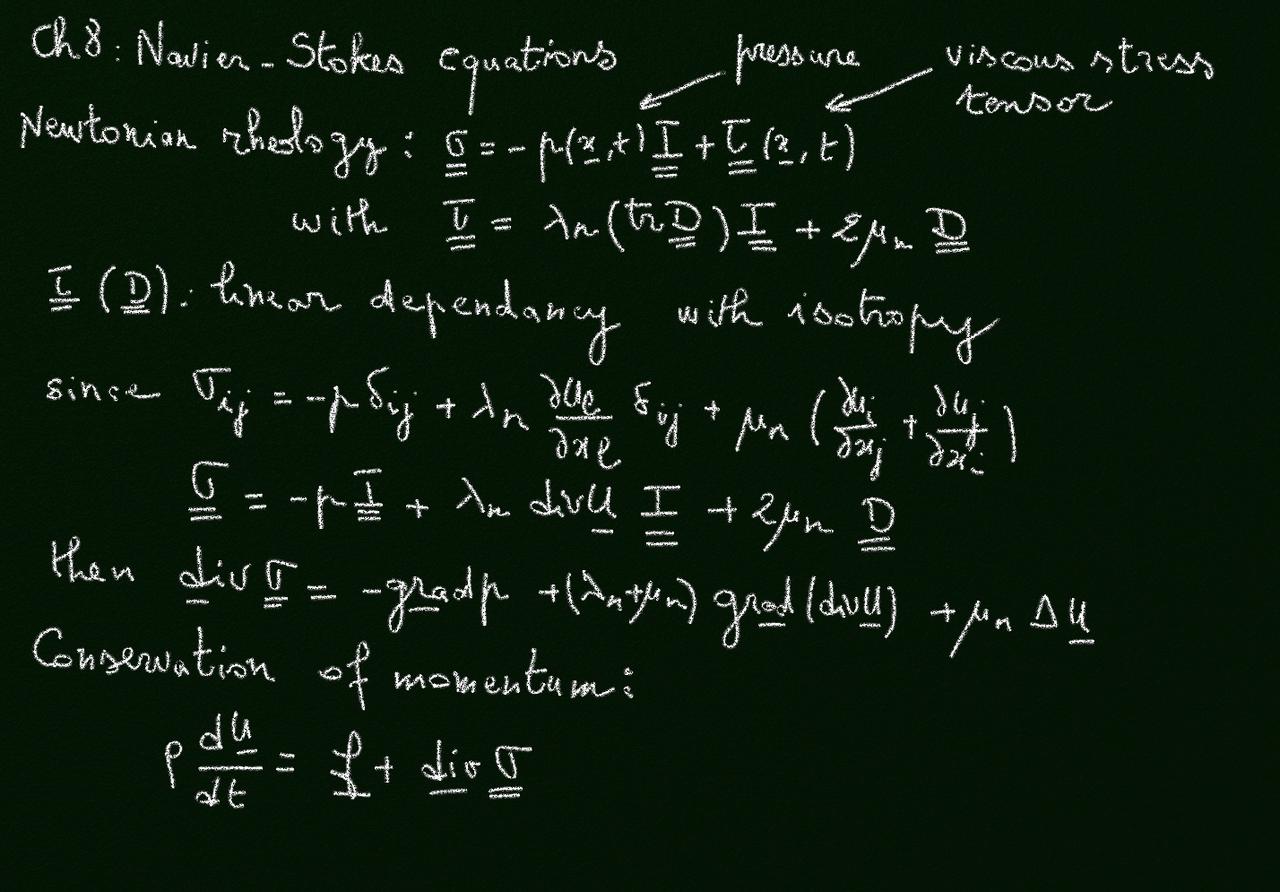 Ch 8: Navier-Stokes equations
pressure
viscous stress
tensor
Newtonian rheology: σ = -p(x,t) I + τ(x,t)
with τ = λn(tr D) I + 2μn D
τ(D): linear dependancy with isotropy
since σij = -p δij + λn ∂uℓ/∂xℓ δij + μn (∂ui/∂xj + ∂uj/∂xi)
σ = -p I + λn div U I + 2μn D
then div σ = -grad p + (λn+μn) grad (div U) + μn Δ U
Conservation of momentum:
ρ dU/dt = f + div σ